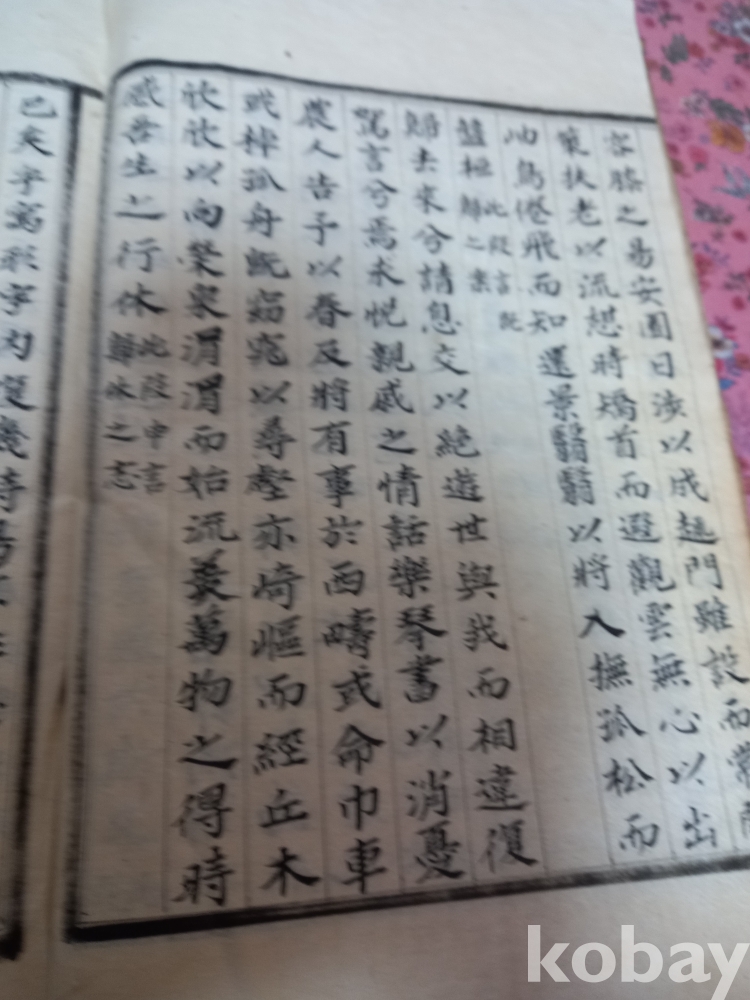 容膝之易安園日涉以成趣門雖設而常
策扶老以流憩時矯首而遐觀雲無心以出
岫鳥倦飛而知還景翳翳以將入撫孤松而
盤桓 此段言既歸之樂
歸去來兮請息交以絶遊世與我而相違復
駕言兮焉求悅親戚之情話樂琴書以消憂
農人告予以春及將有事於西疇或命巾車
或棹孤舟旣窈窕以尋壑亦崎嶇而經丘木
欣欣以向榮泉涓涓而始流羨萬物之得時
感吾生之行休 此段申言歸休之志
已矣乎寓形宇內復幾時曷
kobay